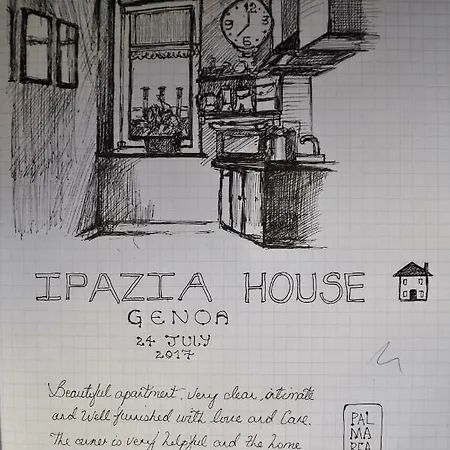 IPAZIA HOUSE
GENOA
24 JULY
2017
Beautiful apartment, very clean, intimate
and well furnished with love and care.
The owner is very helpful and the home
PAL
MA